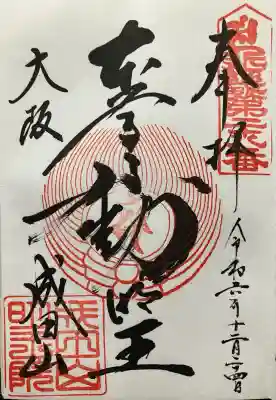 奉拝
令和六年十二月二四日
本尊不動明王
大阪
成田山